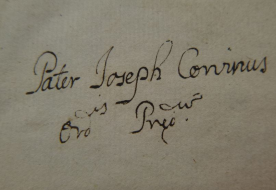 Pater Joseph Corvinus
Ordis Prędw.